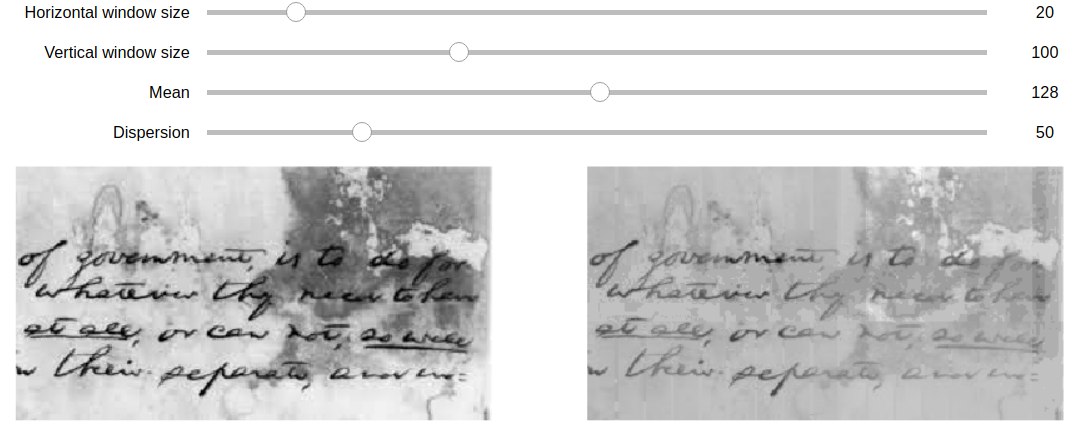 Horizontal window size 20
Vertical window size 100
Mean 128
Dispersion 50
of government, is to do for
whatever they need to have
at all, or can not, so well
their separate, and
of government, is to do for
whatever they need to have
at all, or can not, so well
their separate, and